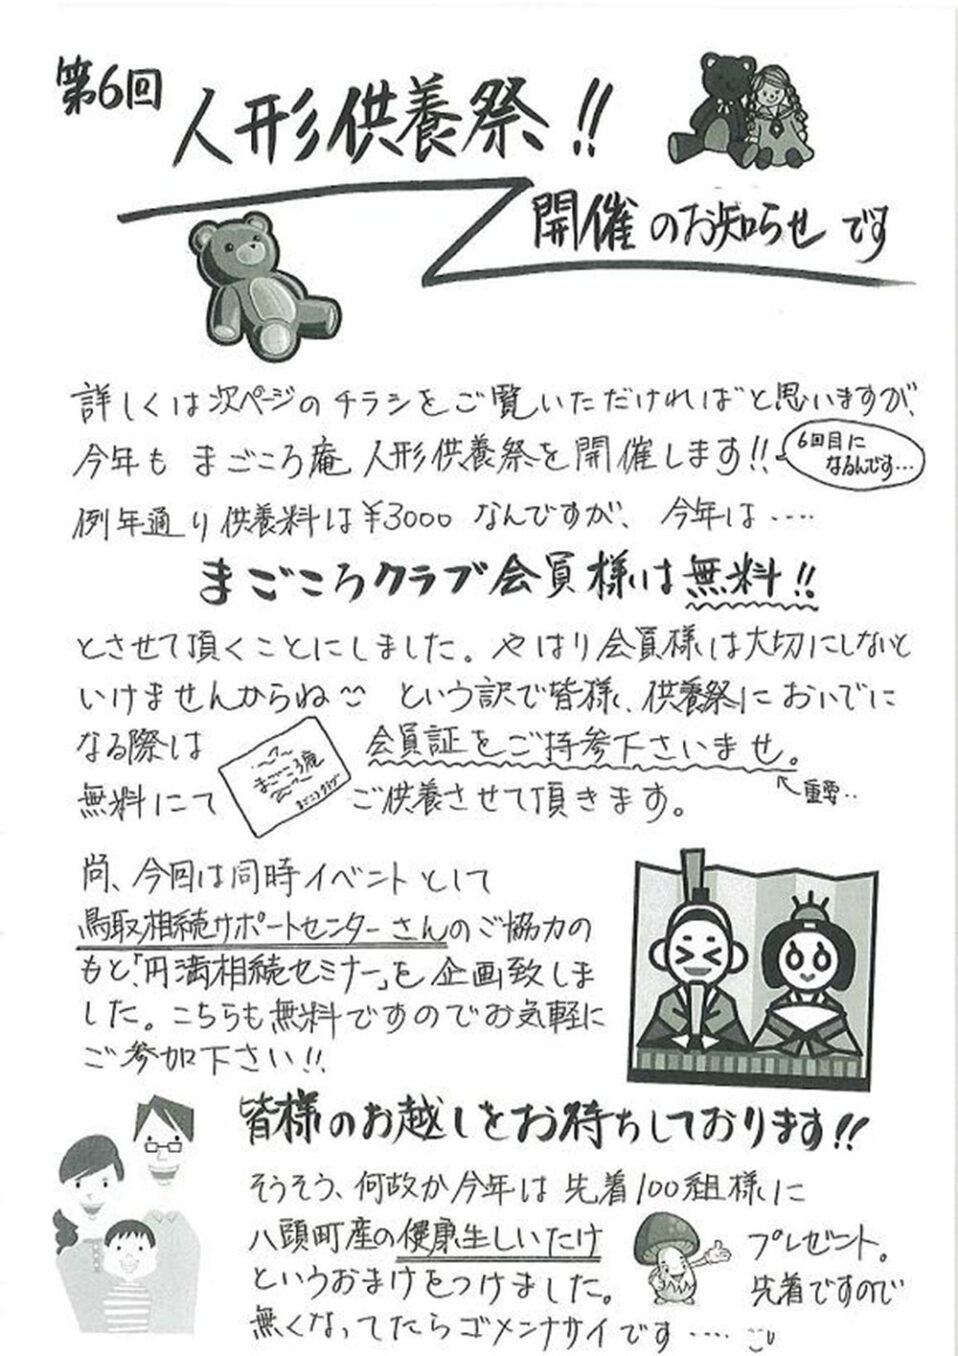 第6回
人形供養祭!!
開催のお知らせです
詳しくは次ページのチラシをご覧いただければと思いますが、
今年も まごころ庵 人形供養祭を開催します!!
6回目に
なるんです…
例年通り供養料は¥3000 なんですが、今年は‥‥
まごころクラブ会員様は無料!!
とさせて頂くことにしました。やはり会員様は大切にしないと
いけませんからね という訳で皆様、供養祭においでに
なる際は 会員証をご持参下さいませ。
重要‥
まごころ庵
まごころクラブ
無料にて ご供養させて頂きます。
尚、今回は同時イベントとして
鳥取相続サポートセンターさんのご協力の
もと、「円満相続セミナー」を企画致しま
した。こちらも無料ですのでお気軽に
ご参加下さい!!
皆様のお越しをお待ちしております!!
そうそう、何故か今年は先着100組様に
八頭町産の健康生しいたけ プレゼント。
というおまけをつけました。 先着ですので
無くなってたらゴメンナサイです‥‥